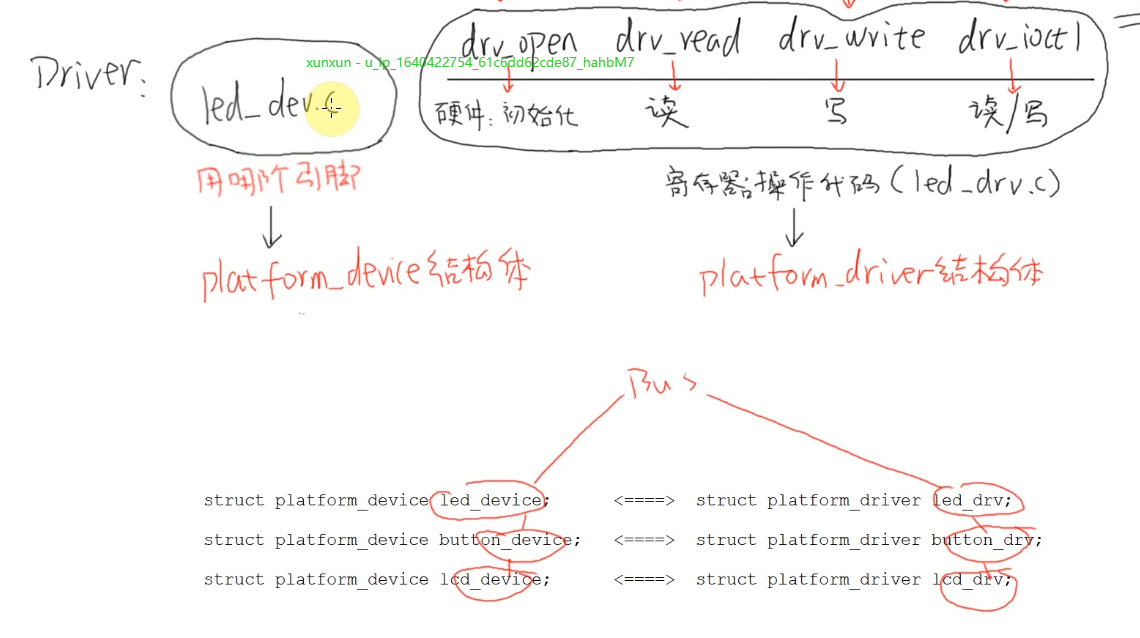 drv_open drv_read drv_write drv_ioctl
xunxun - u_lp_1640422754_61c6dd62cde87_hahbM7
Driver:
led_dev.c
硬件:初始化 读 写 读/写
用哪个引脚
寄存器操作代码(led_drv.c)
platform_device结构体
platform_driver结构体
Bus
struct platform_device led_device; <====> struct platform_driver led_drv;
struct platform_device button_device; <====> struct platform_driver button_drv;
struct platform_device lcd_device; <====> struct platform_driver lcd_drv;